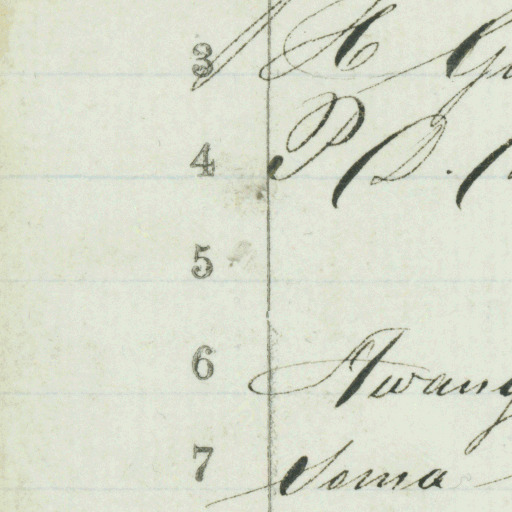 3 H
4 P. D.
5
6 Awang
7 Soma